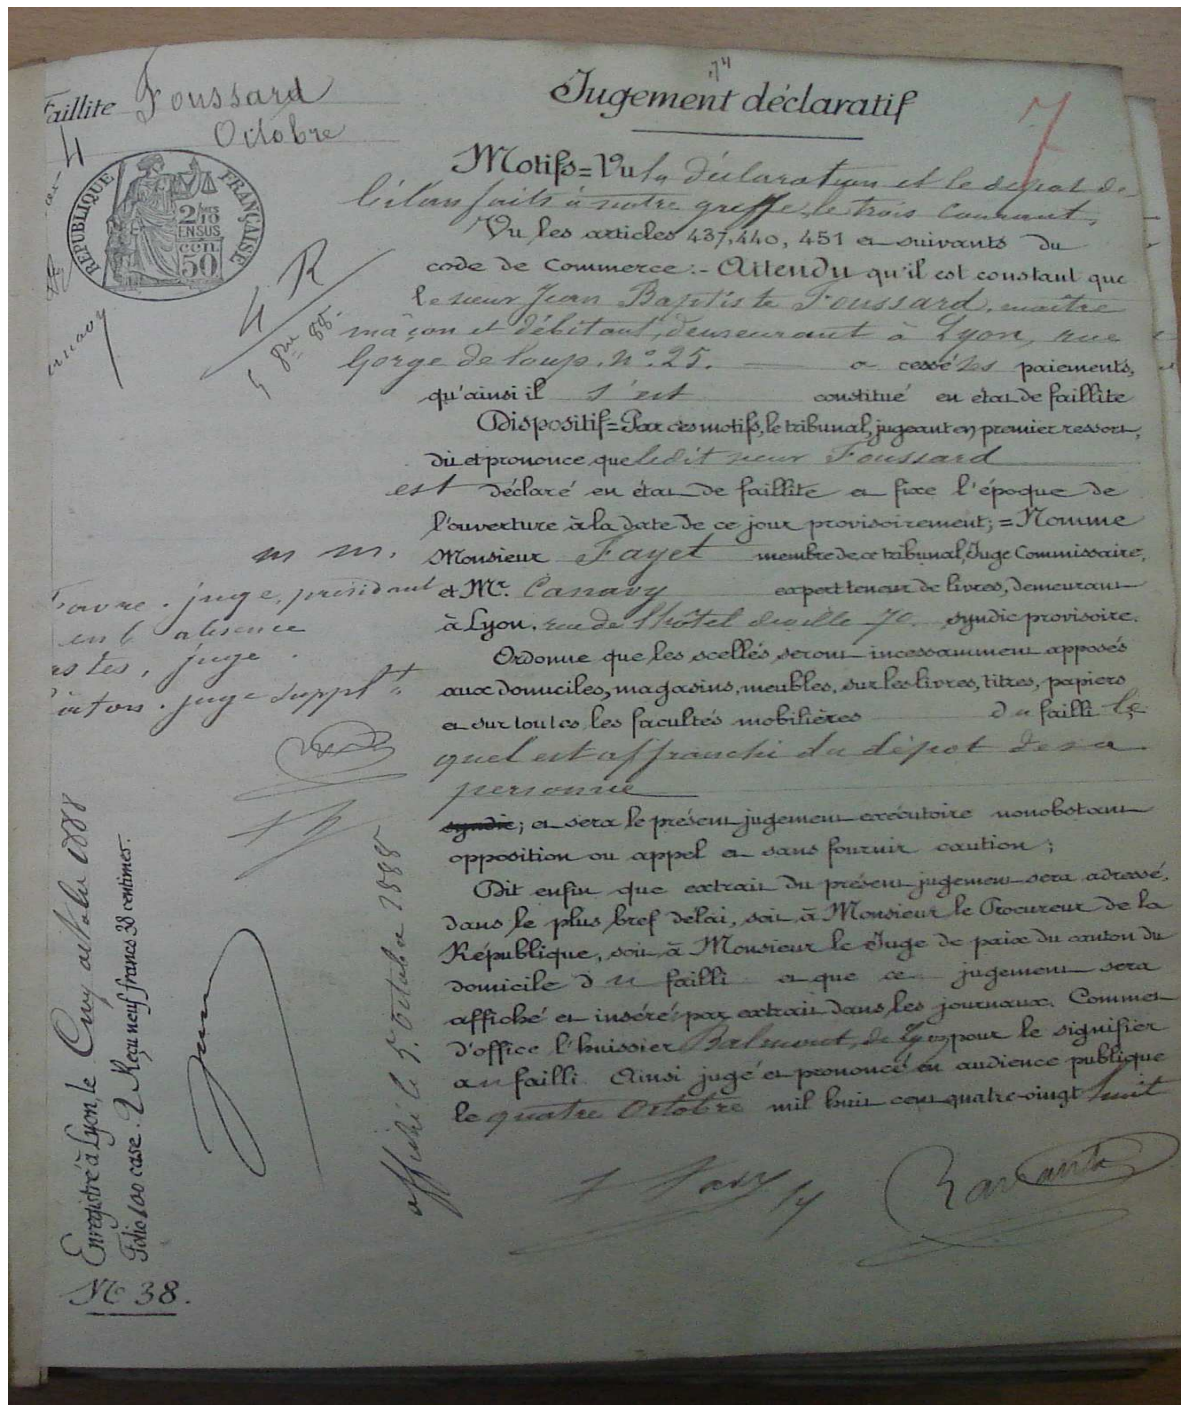 Faillite Foussard
4 Octobre
RÉPUBLIQUE FRANÇAISE
2/10 EN SUS
50 cen
4 R
5 8bre 88
m m.
Favre. juge, président
en l' absence
juge.
juge supplt
Enregistré à Lyon, le Cinq octobre 1888
Folio 100 case. 2 Reçu neuf francs 38 centimes.
N° 38.
affiché le 5 octobre 1888
Jugement déclaratif
7
Motifs = Vu la déclaration et le dépot de
bilan faits à notre greffe, le trois courant,
Vu les articles 437, 440, 451 et suivants du
code de Commerce :- Attendu qu'il est constant que
le sieur Jean Baptiste Foussard, maître
mâçon et débitant, demeurant à Lyon, rue
Gorge de loup. n°. 25. a cessé ses paiements,
qu'ainsi il s'est constitué en état de faillite
Dispositif = Par ces motifs, le tribunal, jugeant en premier ressort,
dit et prononce que ledit sieur Foussard
est déclaré en état de faillite et fixe l'époque de
l'ouverture à la date de ce jour provisoirement; = Nomme
Monsieur Fayet membre de ce tribunal, Juge Commissaire,
et Mr. Canavy expert teneur de livres, demeurant
à Lyon, rue de l'hôtel de ville 70. syndic provisoire.
Ordonne que les scellés seront incessamment apposés
aux domiciles, magasins, meubles, sur les livres, titres, papiers
et sur toutes les facultés mobilières du failli le
quel est affranchi du dépot de sa
personne
syndic; et sera le présent jugement exécutoire nonobstant
opposition ou appel et sans fournir caution;
Dit enfin que extrait du présent jugement sera adressé,
dans le plus bref délai, soit à Monsieur le Procureur de la
République, soit à Monsieur le Juge de paix du canton du
domicile du failli et que ce jugement sera
affiché et inséré par extrait dans les journaux. Commet
d'office l'huissier Balmont, de Lyon pour le signifier
au failli Ainsi jugé et prononcé en audience publique
le quatre Octobre mil huit cent quatre-vingt huit